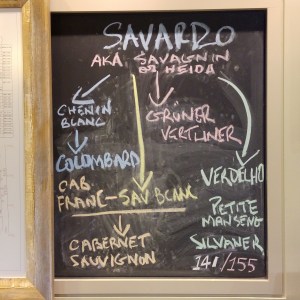 SAVARDO
AKA SAVAGNIN
OR HEIDA
CHENIN
BLANC
GRÜNER
VERTLINER
COLOMBARD
VERDELHO
CAB
FRANC-SAV BLANC
PETITE
MANSENG
CABERNET
SAUVIGNON
SILVANER
141/155